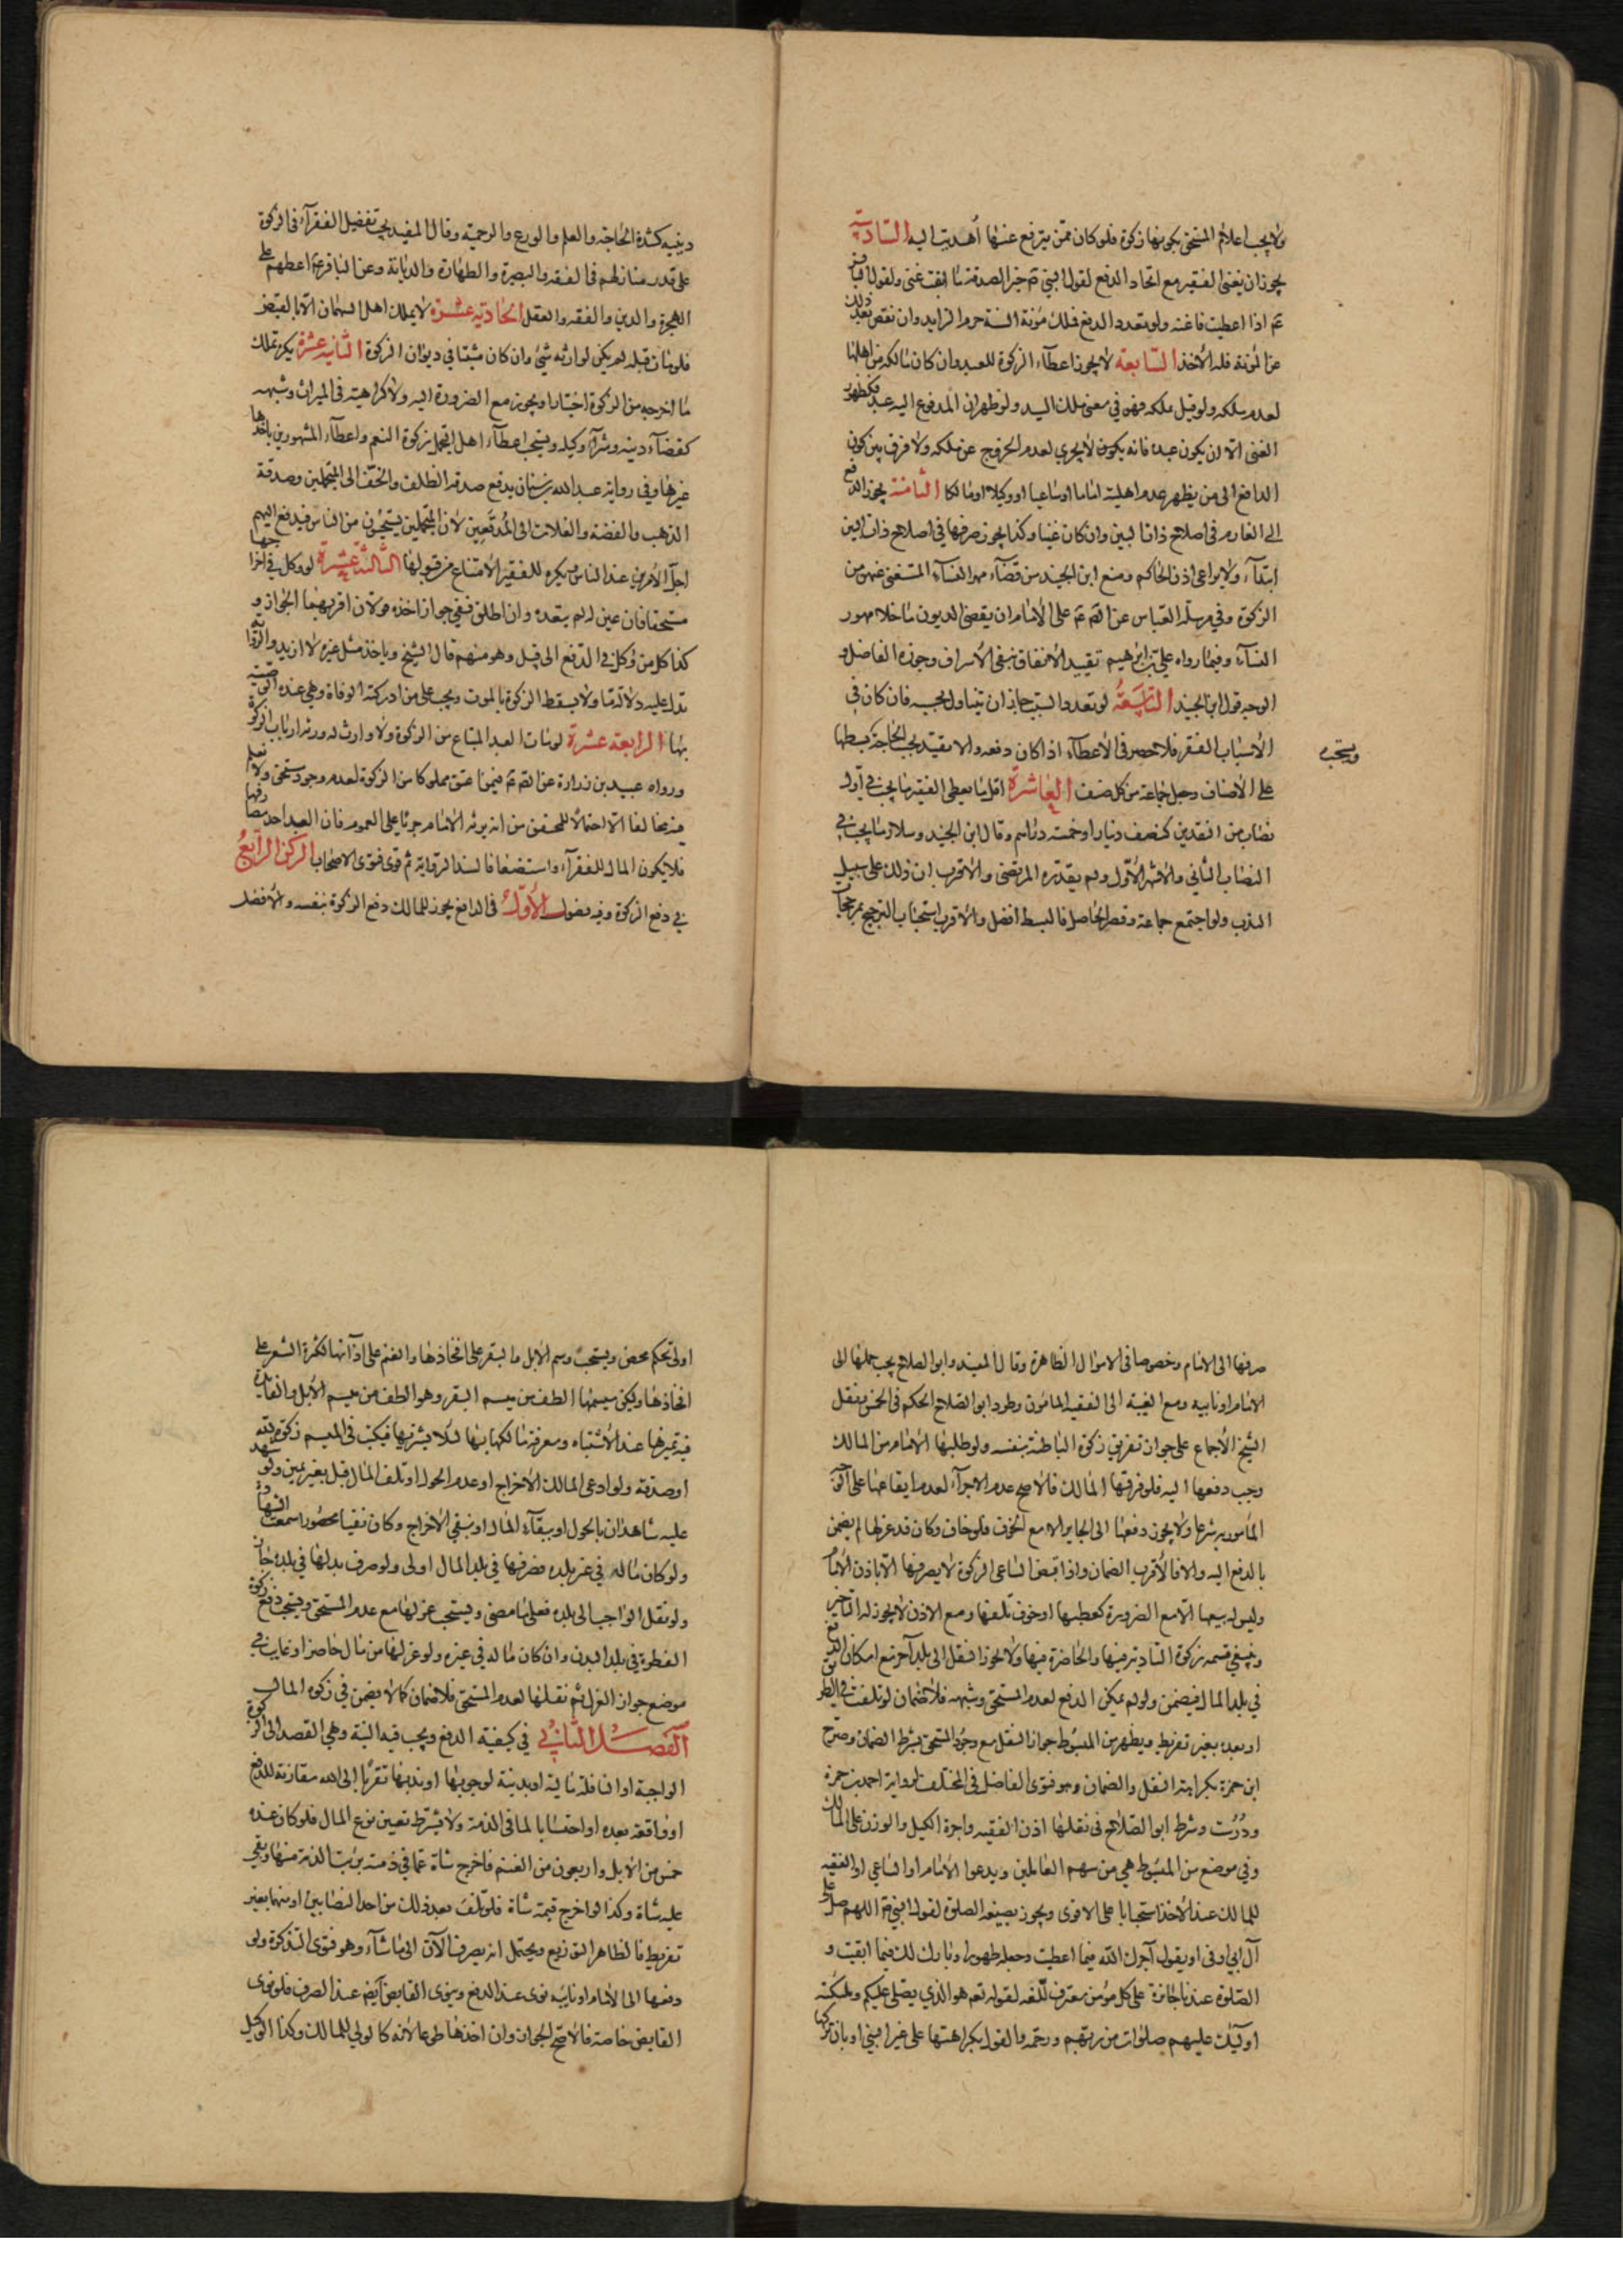 ولا يجب اعلام المستحق بكونها زكوة فلو كان ممن يترفع عنها أهديت اليه السادسة
يجوز ان يغنى الفقير مع اتحاد الدفع لقول النبي ص خير الصدقة ما ابقت غنى ولقول الباقر
ع اذا اعطيت فاغنه ولو تعدد الدفع فملك مؤنة السنة حرم الزايد وان نقص بعد ذلك
عن المؤنة فله الأخذ السابعة لا يجوز اعطاء الزكوة للعبد وان كان مالكه من اهلها
لعدم ملكه ولو قيل بملكه فهو في معنى ملك السيد ولو ظهر ان المدفوع اليه عبد فكظهور
الغنى الا ان يكون عبده فانه يكون لا يجزي لعدم الخروج عن ملكه ولا فرق بين كون
الدافع الى من يظهر عدم اهليته اماما او ساعيا او وكيلا او مالكا الثامنة يجوز الدفع
الى الغارم في اصلاح ذات البين وان كان غنيا وكذا يجوز صرفها في اصلاح ذات البين
ابتداء ولا يراعى اذن الحاكم ومنع ابن الجنيد من قضاء مهر النساء المستغنى عنهن من
الزكوة وفي مرسلة العباس عن الصم ع على الامام ان يقضى الديون ما خلا مهور
النساء وفيما رواه علي بن ابراهيم تقييد الانفاق بنفى الأسراف وجوزه الفاضل و
الوجه قول ابن الجنيد التاسعة لو تعدد السبب جاز ان يتناول بحسبه فان كان في
الأسباب الفقر فلا حصر في الأعطاء اذا كان دفعه والا تقيد بحسب الحاجة بسطها
ويستحب
على الأصناف وجعل جماعة من كل صنف العاشرة اقل ما يعطى الفقير ما يجب في أول
نصاب من النقدين كنصف دينار او خمسة دراهم وقال ابن الجنيد وسلار ما يجب في
النصاب الثاني والأشهر الأول ولم يقدره المرتضى والأقرب ان ذلك على سبيل
الندب ولو اجتمع جماعة وقصر الحاصل فالبسط افضل والأقرب استحباب الترجيح بمرجحات
دينية ككثرة الحاجة والعلم والورع والرحمية وقال المفيد يجب تفضيل الفقراء في الزكوة
على قدر منازلهم في الفقه والبصيرة والطهارة والديانة وعن الباقر ع اعطهم على
الهجرة والدين والفقه والعقل الحادية عشرة لا يملك اهل السهمان الا بالقبض
فلو مات قبله لم يكن لوارثه شيء وان كان مثبتا في ديوان الزكوة الثانية عشرة يكره تملك
ما اخرجه من الزكوة اختيارا ويجوز مع الضرورة اليه ولا كراهية في الميراث وشبهه
كقضاء دينه وشراء وكيله ويستحب اعطاء اهل التجمل زكوة النعم واعطاء المشهورين باخذها
غيرها وفي رواية عبد الله بن سنان يدفع صدقة الظلف والخف الى المتجملين وصدقة
الذهب والفضة والغلات الى المدقعين لأن المتجملين يستحيون من الناس فيدفع اليهم
اجل الأمرين عند الناس ويكره للفقير الامتناع من قبولها الثالثة عشرة لو وكل في اخراجها
مستحقا فان عين له لم يتعده وان اطلق ففي جواز اخذه قولان اقربهما الجواز و
كذا كل من وكل في الدفع الى قبيل وهو منهم قال الشيخ وياخذ مثل غيره لا ازيد والرواية
تدل عليه دلالة ما ولا يسقط الزكوة بالموت ويجب على من ادركته الوفاة وهي عنده الوصية
بها الرابعة عشرة لو مات العبد المبتاع من الزكوة ولا وارث له ورثه ارباب الزكوة
ورواه عبيد بن زرارة عن الصم ع فيمن اعتق مملوكا من الزكوة لعدم وجود مستحق ولا نعلم
فيه مخالفا الا احتمالا للمحقق من انه يرثه الامام جريا على العموم فان العبد احد مصارفها
فلا يكون المال للفقراء واستضعافا لسند الرواية ثم قوى فتوى الاصحاب الركن الرابع
في دفع الزكوة وفيه فصول الأول في الدافع يجوز للمالك دفع الزكوة بنفسه والأفضل
صرفها الى الامام وخصوصا في الاموال الظاهرة وقال المفيد وابو الصلاح يجب حملها الى
الامام او نايبه ومع الغيبة الى الفقيه المأمون وطرد ابو الصلاح الحكم في الخمس ونقل
الشيخ الأجماع على جواز تفريق زكوة الباطنة بنفسه ولو طلبها الأمام من المالك
وجب دفعها اليه فلو فرقها المالك فالاصح عدم الاجزاء لعدم ايقاعها على الوجه
المأمور به شرعا ولا يجوز دفعها الى الجاير الا مع الخوف فلو خاف وكان قد عزلها لم يضمن
بالدفع اليه والا فالأقرب الضمان واذا قبض الساعى الزكوة لا يصرفها الا باذن الأمام
وليس له بيعها الا مع الضرورة كعطبها او خوف تلفها ومع الاذن لا يجوز له التاخير
وينبغي قسمة زكوة البادية فيها والحاضرة فيها ولا يجوز النقل الى بلد آخر مع امكان الدفع
في بلد المال فيضمن ولو لم يمكن الدفع لعدم المستحق وشبهه فلا ضمان لو تلفت في الطريق
او بعده بغير تفريط ويظهر من المبسوط جواز النقل مع وجود المستحق بشرط الضمان وصرح
ابن حمزة بكراهية النقل والضمان وهو فتوى الفاضل في المختلف لرواية احمد بن حمزة
ودرست وشرط ابو الصلاح في نقلها اذن الفقيه واجرة الكيل والوزن على المالك
وفي موضع من المبسوط هي من سهم العاملين ويدعوا الأمام او الساعي او الفقيه
للمالك عند الأخذ استحبابا على الاقوى ويجوز بصيغة الصلوة لقول النبي ص اللهم صل على
آل ابي اوفى او يقول آجرك الله فيما اعطيت وجعله طهورا وبارك لك فيما ابقيت و
الصلوة عندنا جائزة على كل مؤمن لقوله تعم هو الذي يصلي عليكم وملئكته
اولئك عليهم صلوات من ربهم ورحمة والقول بكراهتها على غير النبي او بان تركها
اولى تحكم محض ويستحب وسم الأبل والبقر على افخاذها والغنم على آذانها لكثرة الشعر على
افخاذها وليكن ميسمها الطف من ميسم البقر وهو الطف من ميسم الأبل والفايدة
فيه تميزها عند الأشتباه ومعرفة مالكها بها لئلا يشتريها فيكتب في الميسم زكوة لله
او صدقة ولو ادعى المالك الأخراج او عدم الحول او تلف المال قبل بغير يمين ولو شهد
عليه شاهدان بالحول او ببقاء المال او بنفي الأخراج وكان نفيا محصورا سمعت
ولو كان ماله في غير بلده فصرفها في بلد المال اولى ولو صرف بدلها في بلده جاز
ولو نقل الواجب الى بلده فعلى ما مضى ويستحب عزلها مع عدم المستحق ويستحب دفع زكوة
الفطرة في بلد البدن وان كان ماله في غيره ولو عزلها من مال حاضر او غايب في
موضع جواز العزل ثم نقلها لعدم المستحق فلا ضمان كما لا يضمن في زكوة المال
الفصل الثاني في كيفية الدفع ويجب فيه النية وهي القصد الى الزكوة
الواجبة او النافلة مالية او بدنية لوجوبها او ندبها تقربا الى الله مقارنة للدفع
او واقعة بعده او احتسابا لما في الذمة ولا يشترط تعيين نوع المال فلو كان عنده
خمس من الابل واربعون من الغنم فاخرج شاة عما في ذمته برئت الذمة منها وبقي
عليه شاة وكذا لو اخرج قيمة شاة فلو تلف بعد ذلك من احد النصابين او منهما بغير
تفريط فالظاهر التوزيع ويحتمل انه يصرف الآن الى ما شاء وهو فتوى التذكرة ولو
دفعها الى الأمام او نايبه نوى عند الدفع وينوى القابض ايضا عند الصرف فلو نوى
القابض خاصة فالأصح الجواز وان اخذها طوعا لأنه كالولي للمالك وكذا الوكيل